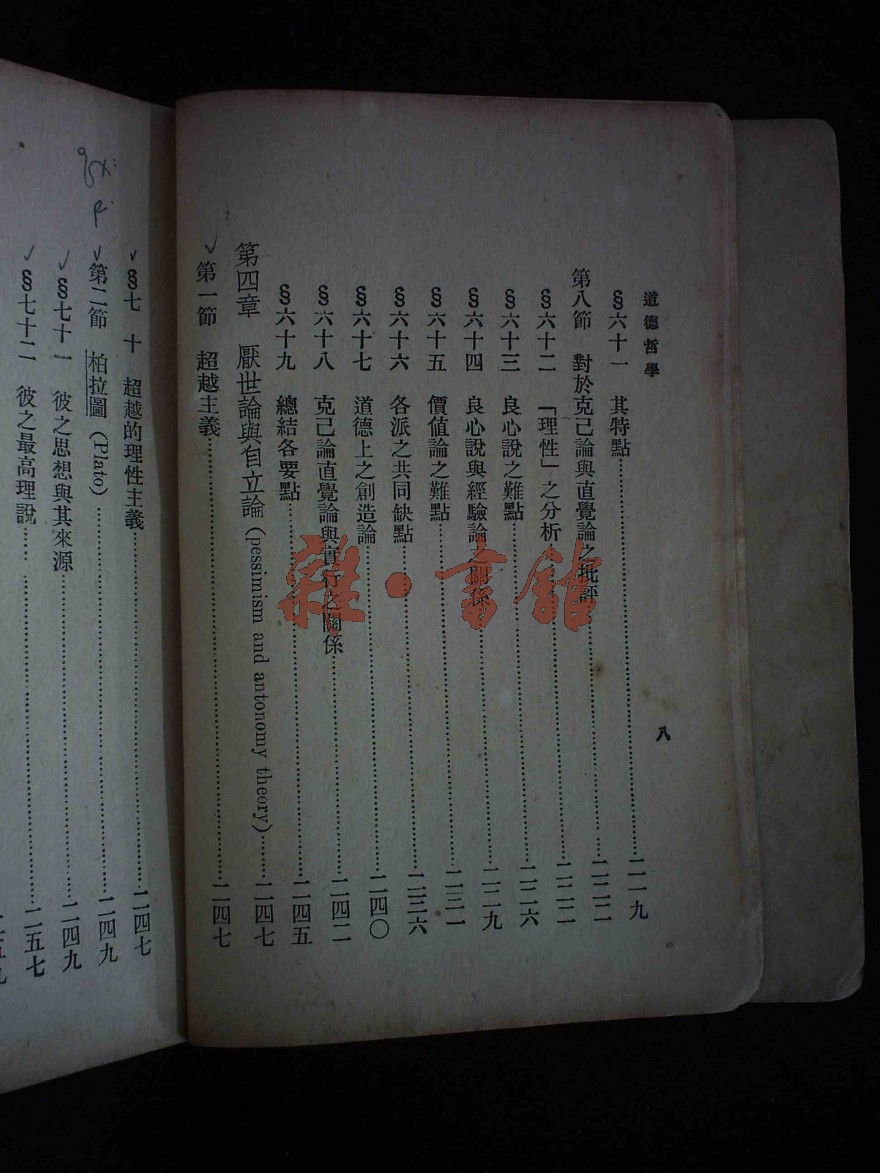 道德哲學
八
§六十一 其特點……二一九
第八節 對於克己論與直覺論之批評……二二二
§六十二 「理性」之分析……二二二
§六十三 良心說之難點……二二六
§六十四 良心說與經驗論之關係……二二九
§六十五 價值論之難點……二三一
§六十六 各派之共同缺點……二三六
§六十七 道德上之創造論……二四〇
§六十八 克己論直覺論與實行之關係……二四二
§六十九 總結各要點……二四五
第四章 厭世論與自立論(pessimism and antonomy theory)……二四七
第一節 超越主義……二四七
§七十 超越的理性主義……二四七
第二節 柏拉圖(Plato)……二四九
§七十一 彼之思想與其來源……二四九
§七十二 彼之最高理說……二五七
雜·書館